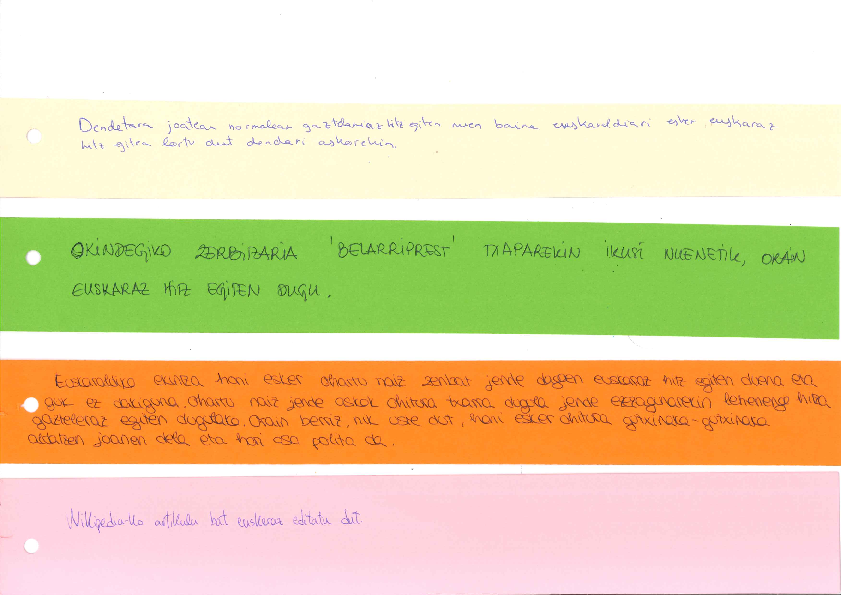 Dendetara joatean normalean gaztelaniaz hitz egiten nuen baina euskaraldiari esker, euskaraz
hitz egitea lortu dut dendari askorekin.
OKINDEGIKO ZERBIZARIA 'BELARRIPREST' TXAPAREKIN IKUSI NUENETIK, ORAIN
EUSKARAZ HITZ EGITEN DUGU.
Euskaraldiko ekintza honi esker ohartu naiz zenbat jende dagoen euskaraz hitz egiten duena eta
guk ez dakiguna. Ohartu naiz jende askok ohitura txarra dugula jende ezezagunarekin lehenengo hitza
gazteleraz egiten dugulako. Orain beraz, nik uste dut, honi esker ohitura gutxinaka-gutxinaka
aldatzen joanen dela eta hori oso polita da.
Wikipedia-ko artikulu bat euskeraz editatu dut.